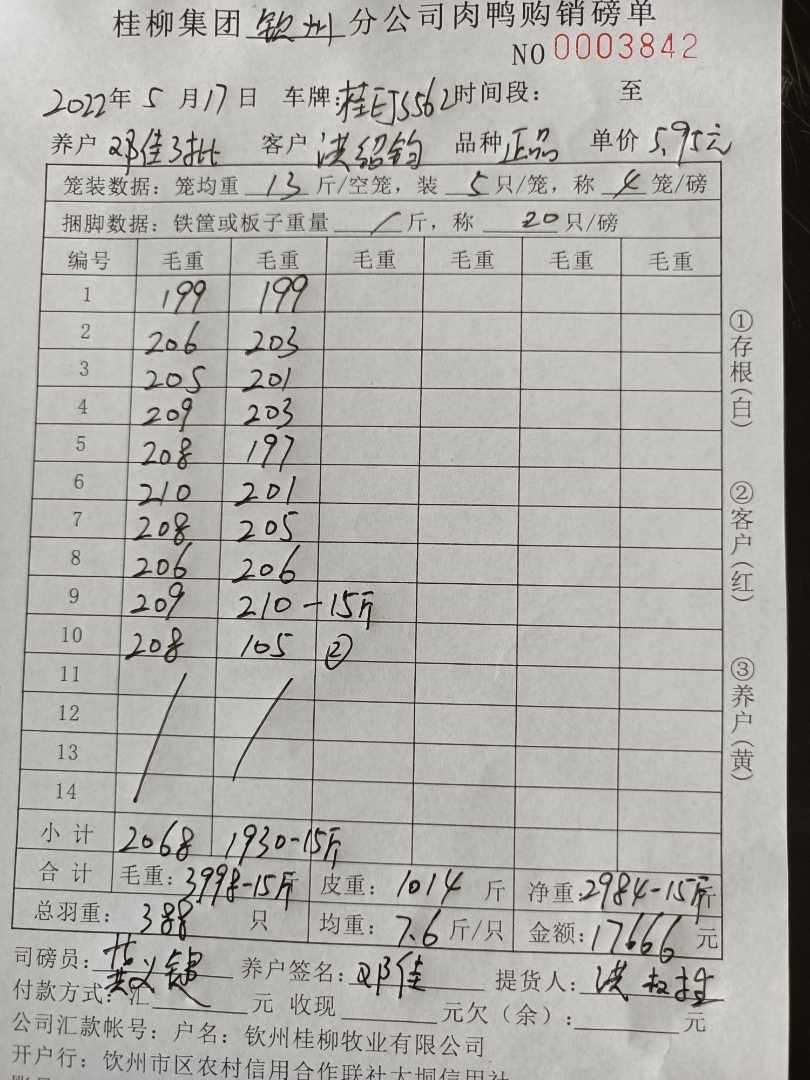 桂柳集团 钦州 分公司肉鸭购销磅单
NO 0003842
2022年 5 月 17 日 车牌: 桂EJS562 时间段: 至
养户 邓佳 客户 洪绍钧 品种 正品 单价 5.95元
笼装数据: 笼均重 13 斤/空笼, 装 5 只/笼, 称 4 笼/磅
捆脚数据: 铁筐或板子重量 / 斤, 称 20 只/磅
编号 毛重 毛重 毛重 毛重 毛重 毛重
1 199 199
2 206 203
3 205 201
4 209 203
5 208 197
6 210 201
7 208 205
8 206 206
9 209 210 -15斤
10 208 105 ②
11
12
13
14
小计 2068 1930-15斤
合计 毛重: 3998-15斤 皮重: 1014 斤 净重: 2984-15斤
总羽重: 388 只 均重: 7.6 斤/只 金额: 17666 元
司磅员: 养户签名: 邓佳 提货人: 洪
付款方式: 汇 元 收现 元欠(余): 元
公司汇款帐号: 户名: 钦州桂柳牧业有限公司
开户行: 钦州市区农村信用合作联社大垌信用社
①存根(白)
②客户(红)
③养户(黄)